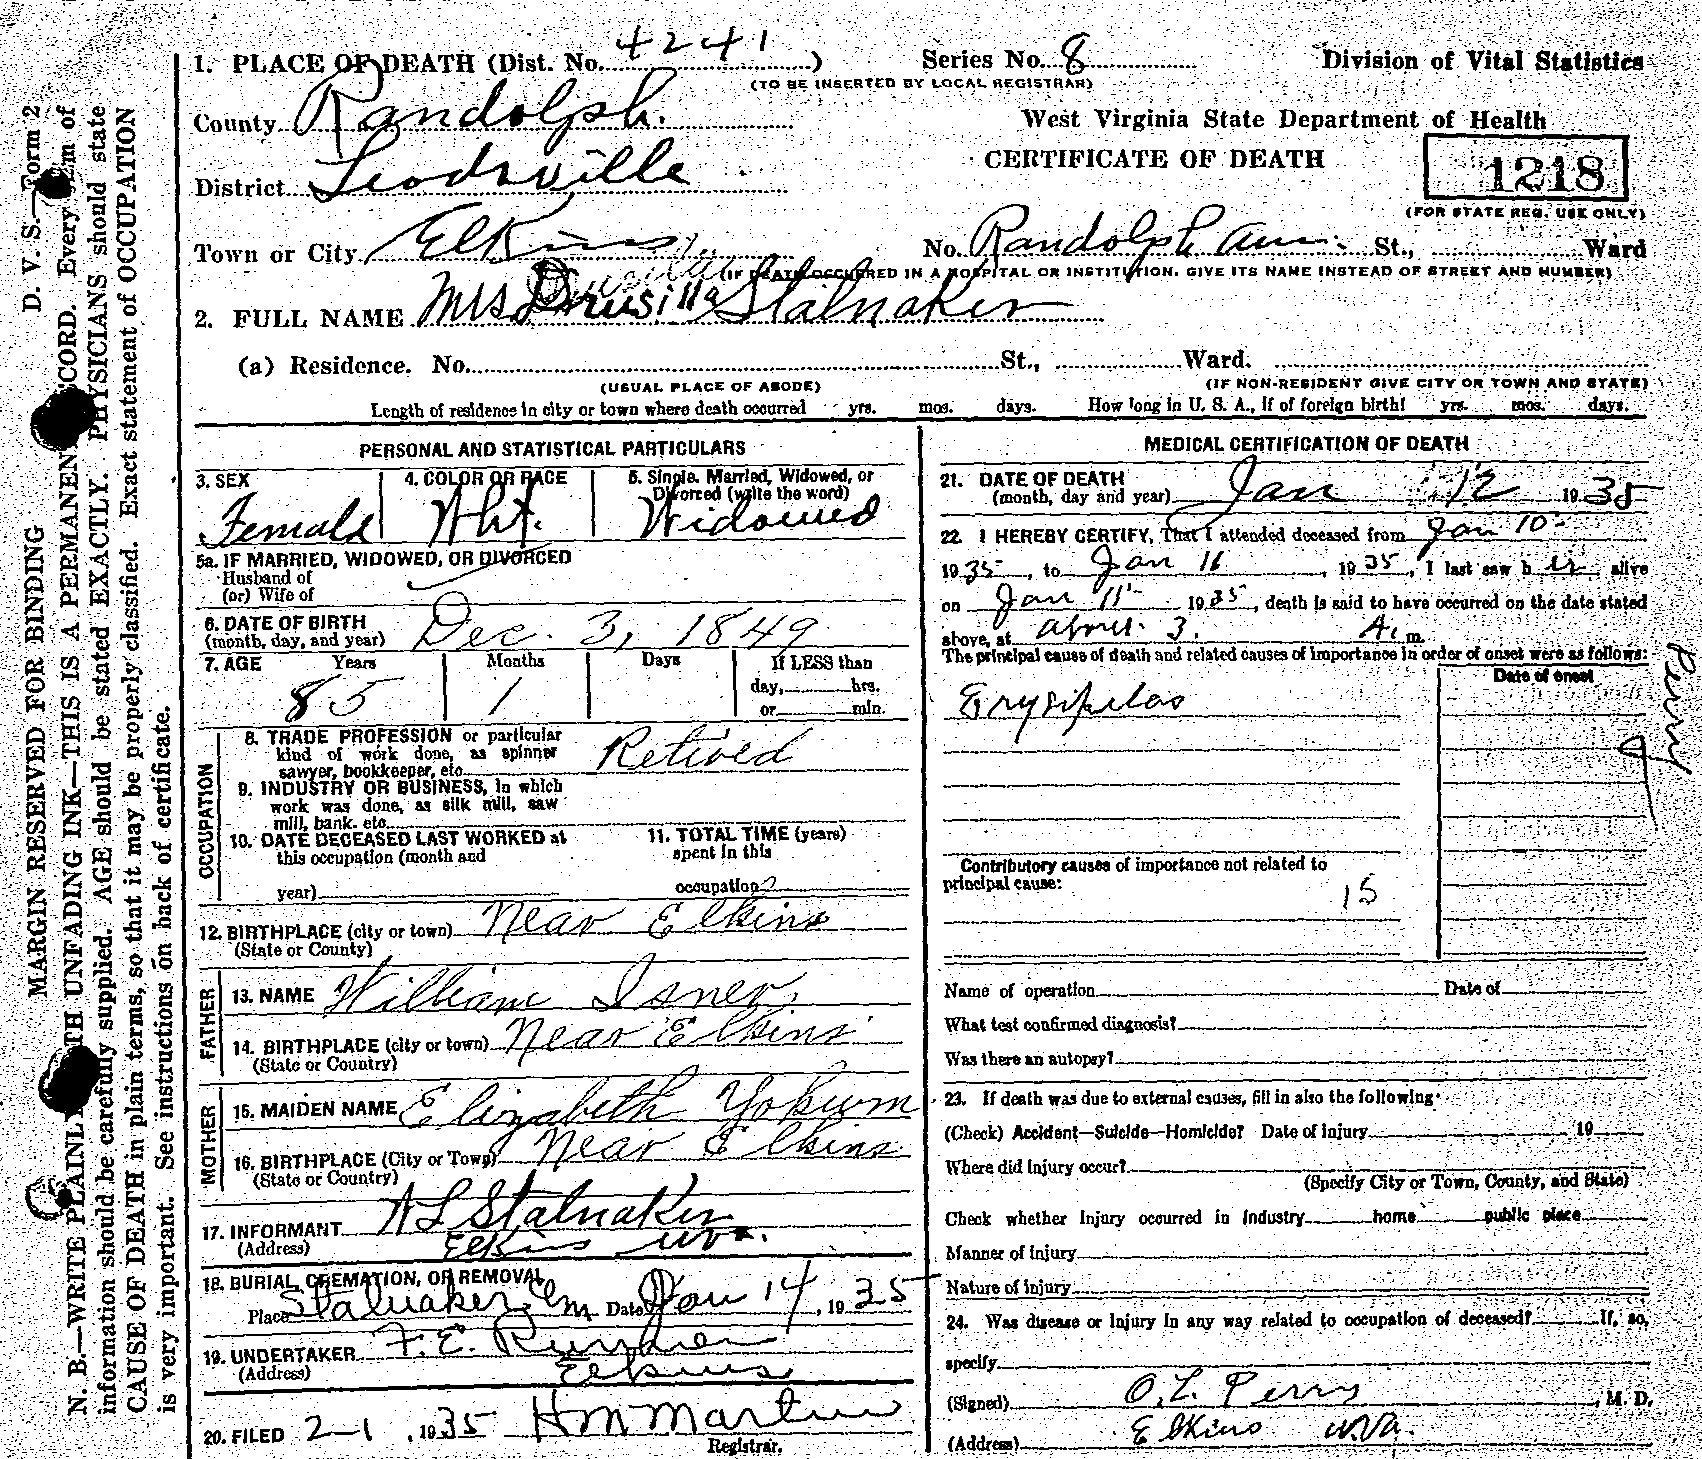 1. PLACE OF DEATH (Dist. No. 4241 )
Series No. 8
Division of Vital Statistics
(TO BE INSERTED BY LOCAL REGISTRAR)
County Randolph.
West Virginia State Department of Health
CERTIFICATE OF DEATH
1218
(FOR STATE REG. USE ONLY)
District Leadsville
Town or City Elkins
No. Randolph Ave. St., Ward
(IF DEATH OCCURRED IN A HOSPITAL OR INSTITUTION, GIVE ITS NAME INSTEAD OF STREET AND NUMBER)
2. FULL NAME Mrs Drusilla Stalnaker
(a) Residence. No. St., Ward.
(USUAL PLACE OF ABODE) (IF NON-RESIDENT GIVE CITY OR TOWN AND STATE)
Length of residence in city or town where death occurred yrs. mos. days. How long in U. S. A., if of foreign birth? yrs. mos. days.
PERSONAL AND STATISTICAL PARTICULARS
3. SEX Female
4. COLOR OR RACE Wht.
5. Single, Married, Widowed, or
Divorced (write the word)
Widowed
5a. IF MARRIED, WIDOWED, OR DIVORCED
Husband of
(or) Wife of
6. DATE OF BIRTH
(month, day, and year) Dec. 3, 1849
7. AGE Years Months Days If LESS than
day, hrs.
or min.
85 1
OCCUPATION
8. TRADE PROFESSION or particular
kind of work done, as spinner
sawyer, bookkeeper, etc. Retired
9. INDUSTRY OR BUSINESS, in which
work was done, as silk mill, saw
mill, bank. etc.
10. DATE DECEASED LAST WORKED at
this occupation (month and
year)
11. TOTAL TIME (years)
spent in this
occupation
12. BIRTHPLACE (city or town) Near Elkins
(State or County)
FATHER
13. NAME William Isner
14. BIRTHPLACE (city or town) Near Elkins
(State or Country)
MOTHER
15. MAIDEN NAME Elizabeth Yokum
16. BIRTHPLACE (City or Town) Near Elkins
(State or Country)
17. INFORMANT A L Stalnaker
(Address) Elkins W Va.
18. BURIAL, CREMATION, OR REMOVAL
Place Stalnaker Cem Date Jan 14, 1935
19. UNDERTAKER F. E. Runner
(Address) Elkins
20. FILED 2-1, 1935 H M Martin
Registrar.
MEDICAL CERTIFICATION OF DEATH
21. DATE OF DEATH
(month, day and year) Jan 12 1935
22. I HEREBY CERTIFY, That I attended deceased from Jan 10
1935, to Jan 11, 1935, I last saw her alive
on Jan 11 1935, death is said to have occurred on the date stated
above, at about 3. A. m.
The principal cause of death and related causes of importance in order of onset were as follows:
Date of onset
Erysipelas
Perry
Contributory causes of importance not related to
principal cause:
15
Name of operation Date of
What test confirmed diagnosis?
Was there an autopsy?
23. If death was due to external causes, fill in also the following:
(Check) Accident—Suicide—Homicide? Date of injury 19
Where did injury occur?
(Specify City or Town, County, and State)
Check whether injury occurred in industry home public place
Manner of injury
Nature of injury
24. Was disease or injury in any way related to occupation of deceased? If, so,
specify
(Signed) O. L. Perry, M. D.
(Address) Elkins W. Va.
D. V. S.—Form 2
MARGIN RESERVED FOR BINDING
N. B.—WRITE PLAINLY WITH UNFADING INK—THIS IS A PERMANENT RECORD. Every item of
information should be carefully supplied. AGE should be stated EXACTLY. PHYSICIANS should state
CAUSE OF DEATH in plain terms, so that it may be properly classified. Exact statement of OCCUPATION
is very important. See instructions on back of certificate.